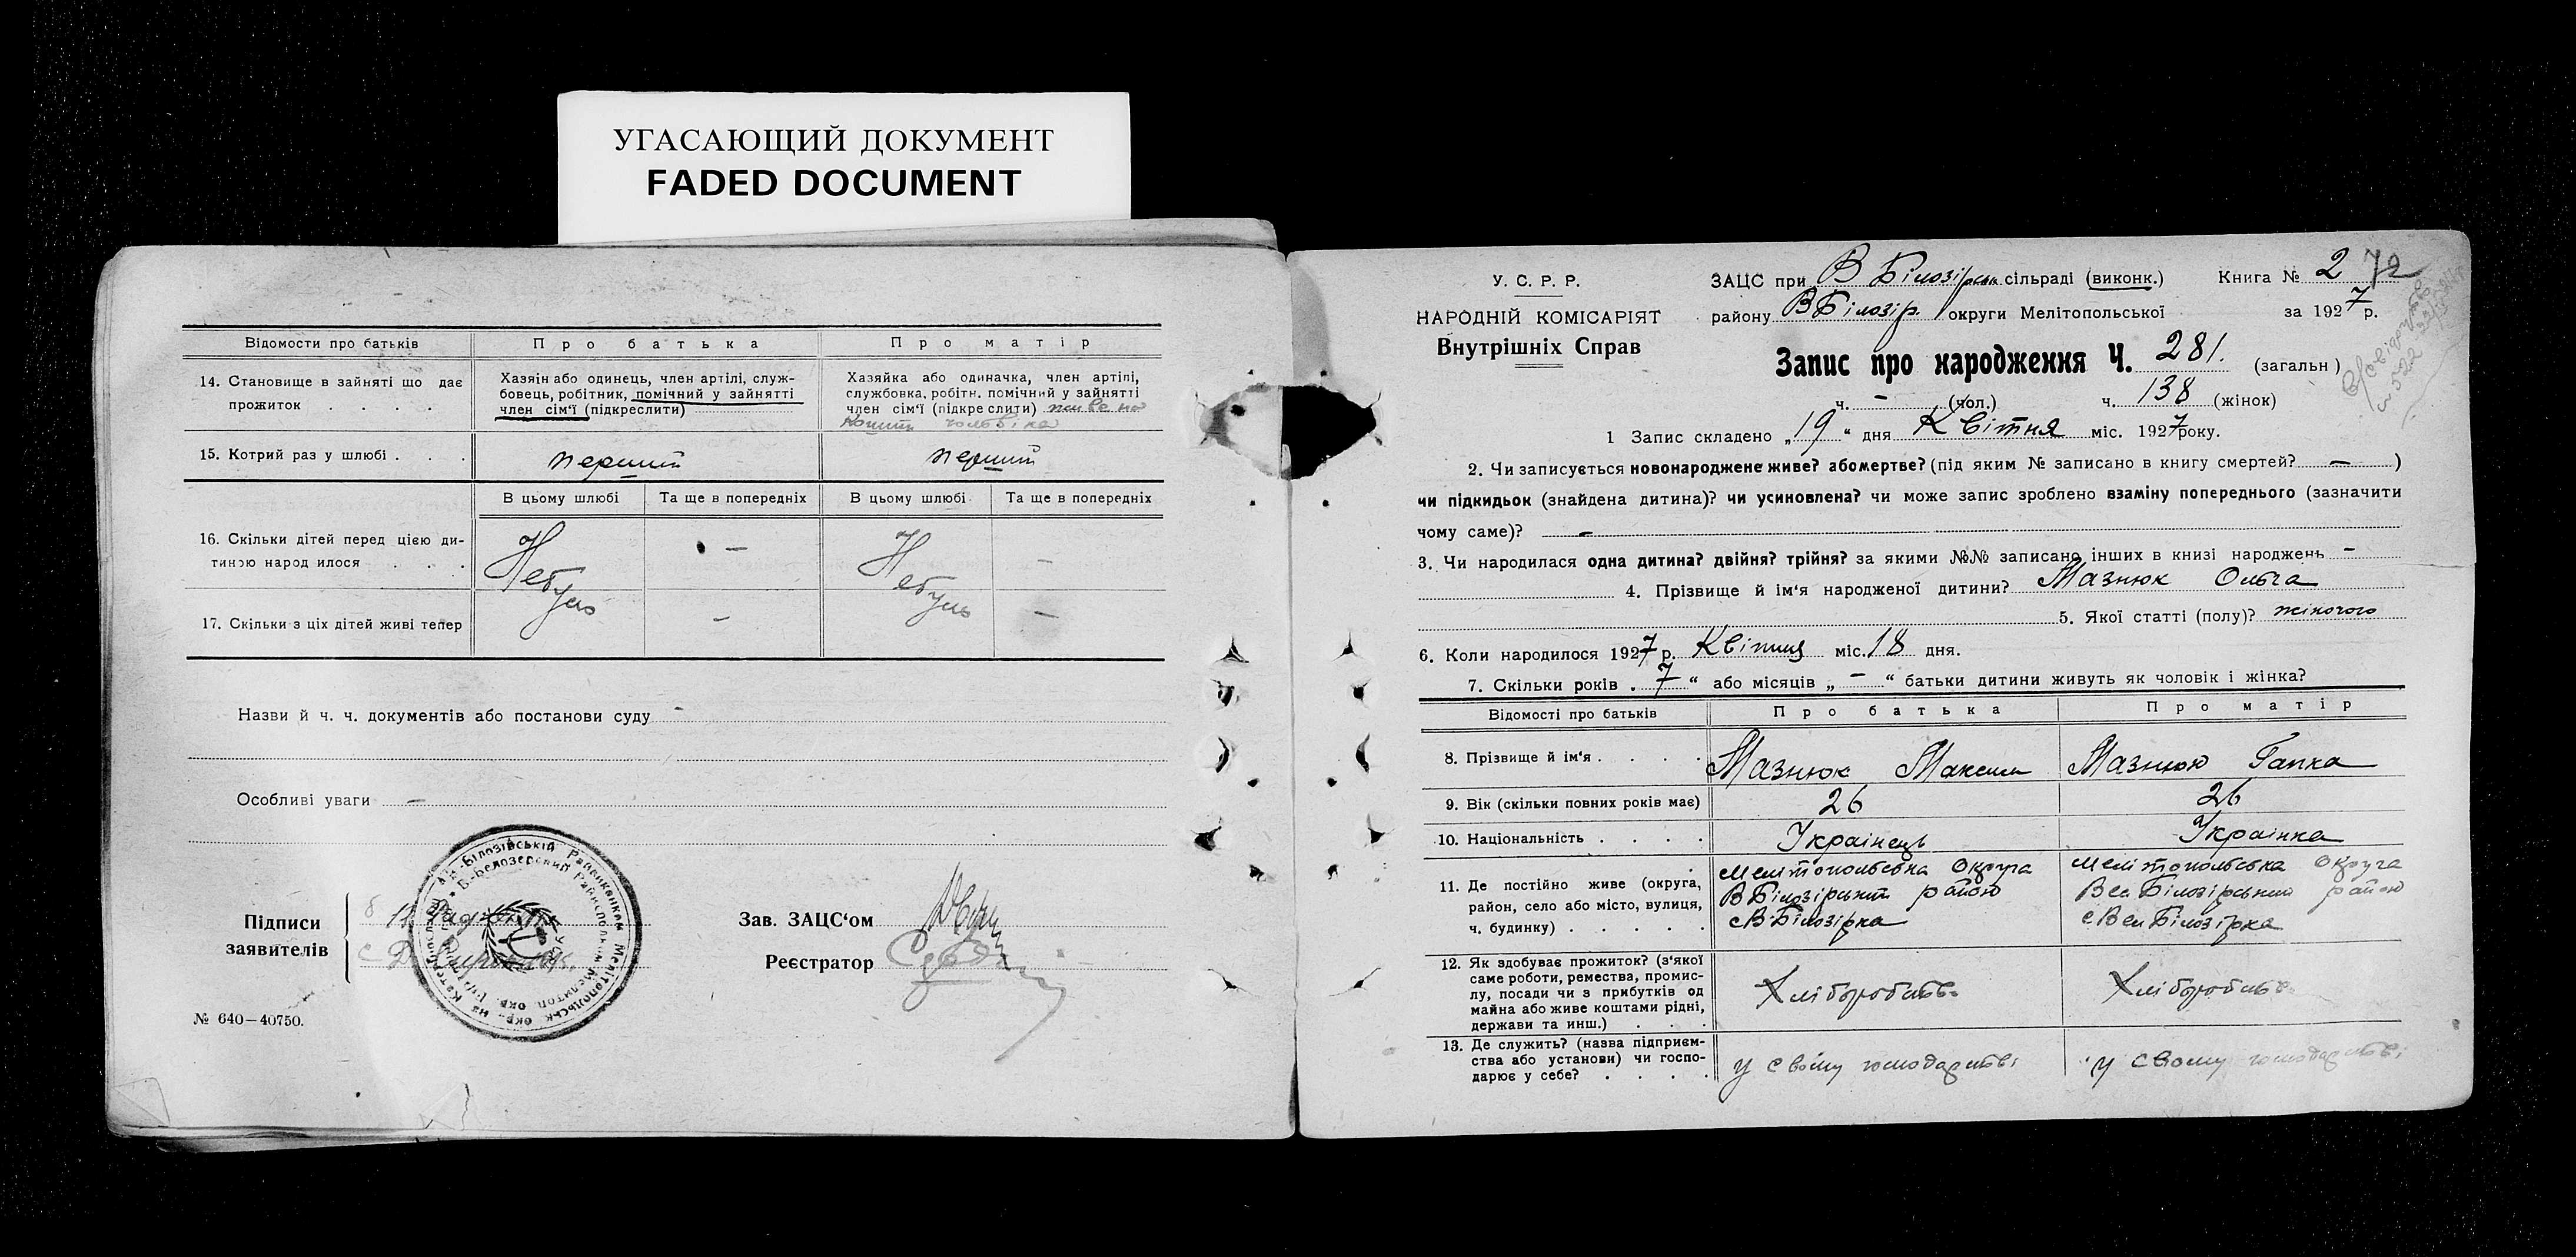 УГАСАЮЩИЙ ДОКУМЕНТ
FADED DOCUMENT
Відомости про батьків
Про батька
Про матір
14. Становище в зайняті що дає прожиток . . . .
Хазяін або одинець, член артілі, службовець, робітник, помічний у зайнятті член сім'ї (підкреслити)
Хазяйка або одиначка, член артілі, службовка, робітн. помічний у зайнятті член сім'ї (підкре слити) живе на
кошти чоловіка
15. Котрий раз у шлюбі . . .
перший
перший
В цьому шлюбі
Та ще в попередніх
В цьому шлюбі
Та ще в попередніх
16. Скільки дітей перед цією ди-
тиною народ илося . . .
Небуло
—
Небуло
—
17. Скільки з ціх дітей живі тепер
—
—
Назви й ч. ч. документів або постанови суду -
Особливі уваги —
Підписи
заявителів
Зав. ЗАЦС'ом
Реєстратор
№ 640—40750.
У. С. Р. Р.
НАРОДНІЙ КОМІСАРІЯТ
Внутрішніх Справ
ЗАЦС при В Білозірськ сільраді (виконк.) Книга № 2 72
району В Білозір. округи Мелітопольської за 1927 р.
Запис про народження Ч. 281. (загальн)
ч. - (чол.) ч. 138 (жінок)
1 Запис складено „19“ дня Квітня міс. 1927 року.
2. Чи записується новонароджене живе? або мертве? (під яким № записано в книгу смертей? — )
чи підкидьок (знайдена дитина)? чи усиновлена? чи може запис зроблено взаміну попереднього (зазначити
чому саме)? -
3. Чи народилася одна дитина? двійня? трійня? за якими №№ записано інших в книзі народжень -
4. Прізвище й ім'я народженої дитини? Мазнюк Ольга
5. Якої статті (полу)? жіночого
6. Коли народилося 1927 р. Квітня міс. 18 дня.
7. Скільки років „7“ або місяців „-“ батьки дитини живуть як чоловік і жінка?
Відомості про батьків
Про батька
Про матір
8. Прізвище й ім'я . . . .
Мазнюк Максим
Мазнюк Гапка
9. Вік (скільки повних років має)
26
26
10. Національність . . . .
Украінець
Украінка
11. Де постійно живе (округа,
район, село або місто, вулиця,
ч. будинку) . . . . .
Мелітопольська Округа
В Білозірський район
с В-Білозірка
Мелітопольська Округа
Вел Білозірський район
с Вел Білозірка
12. Як здобуває прожиток? (з'якої
саме роботи, ремества, промис-
лу, посади чи з прибутків од
майна або живе коштами рідні,
держави та инш.) . . .
Хліборобств.
Хліборобств.
13. Де служить? (назва підприєм-
ства або установи) чи госпо-
дарює у себе? . . . .
у своїму господарстві
у свому господарстві